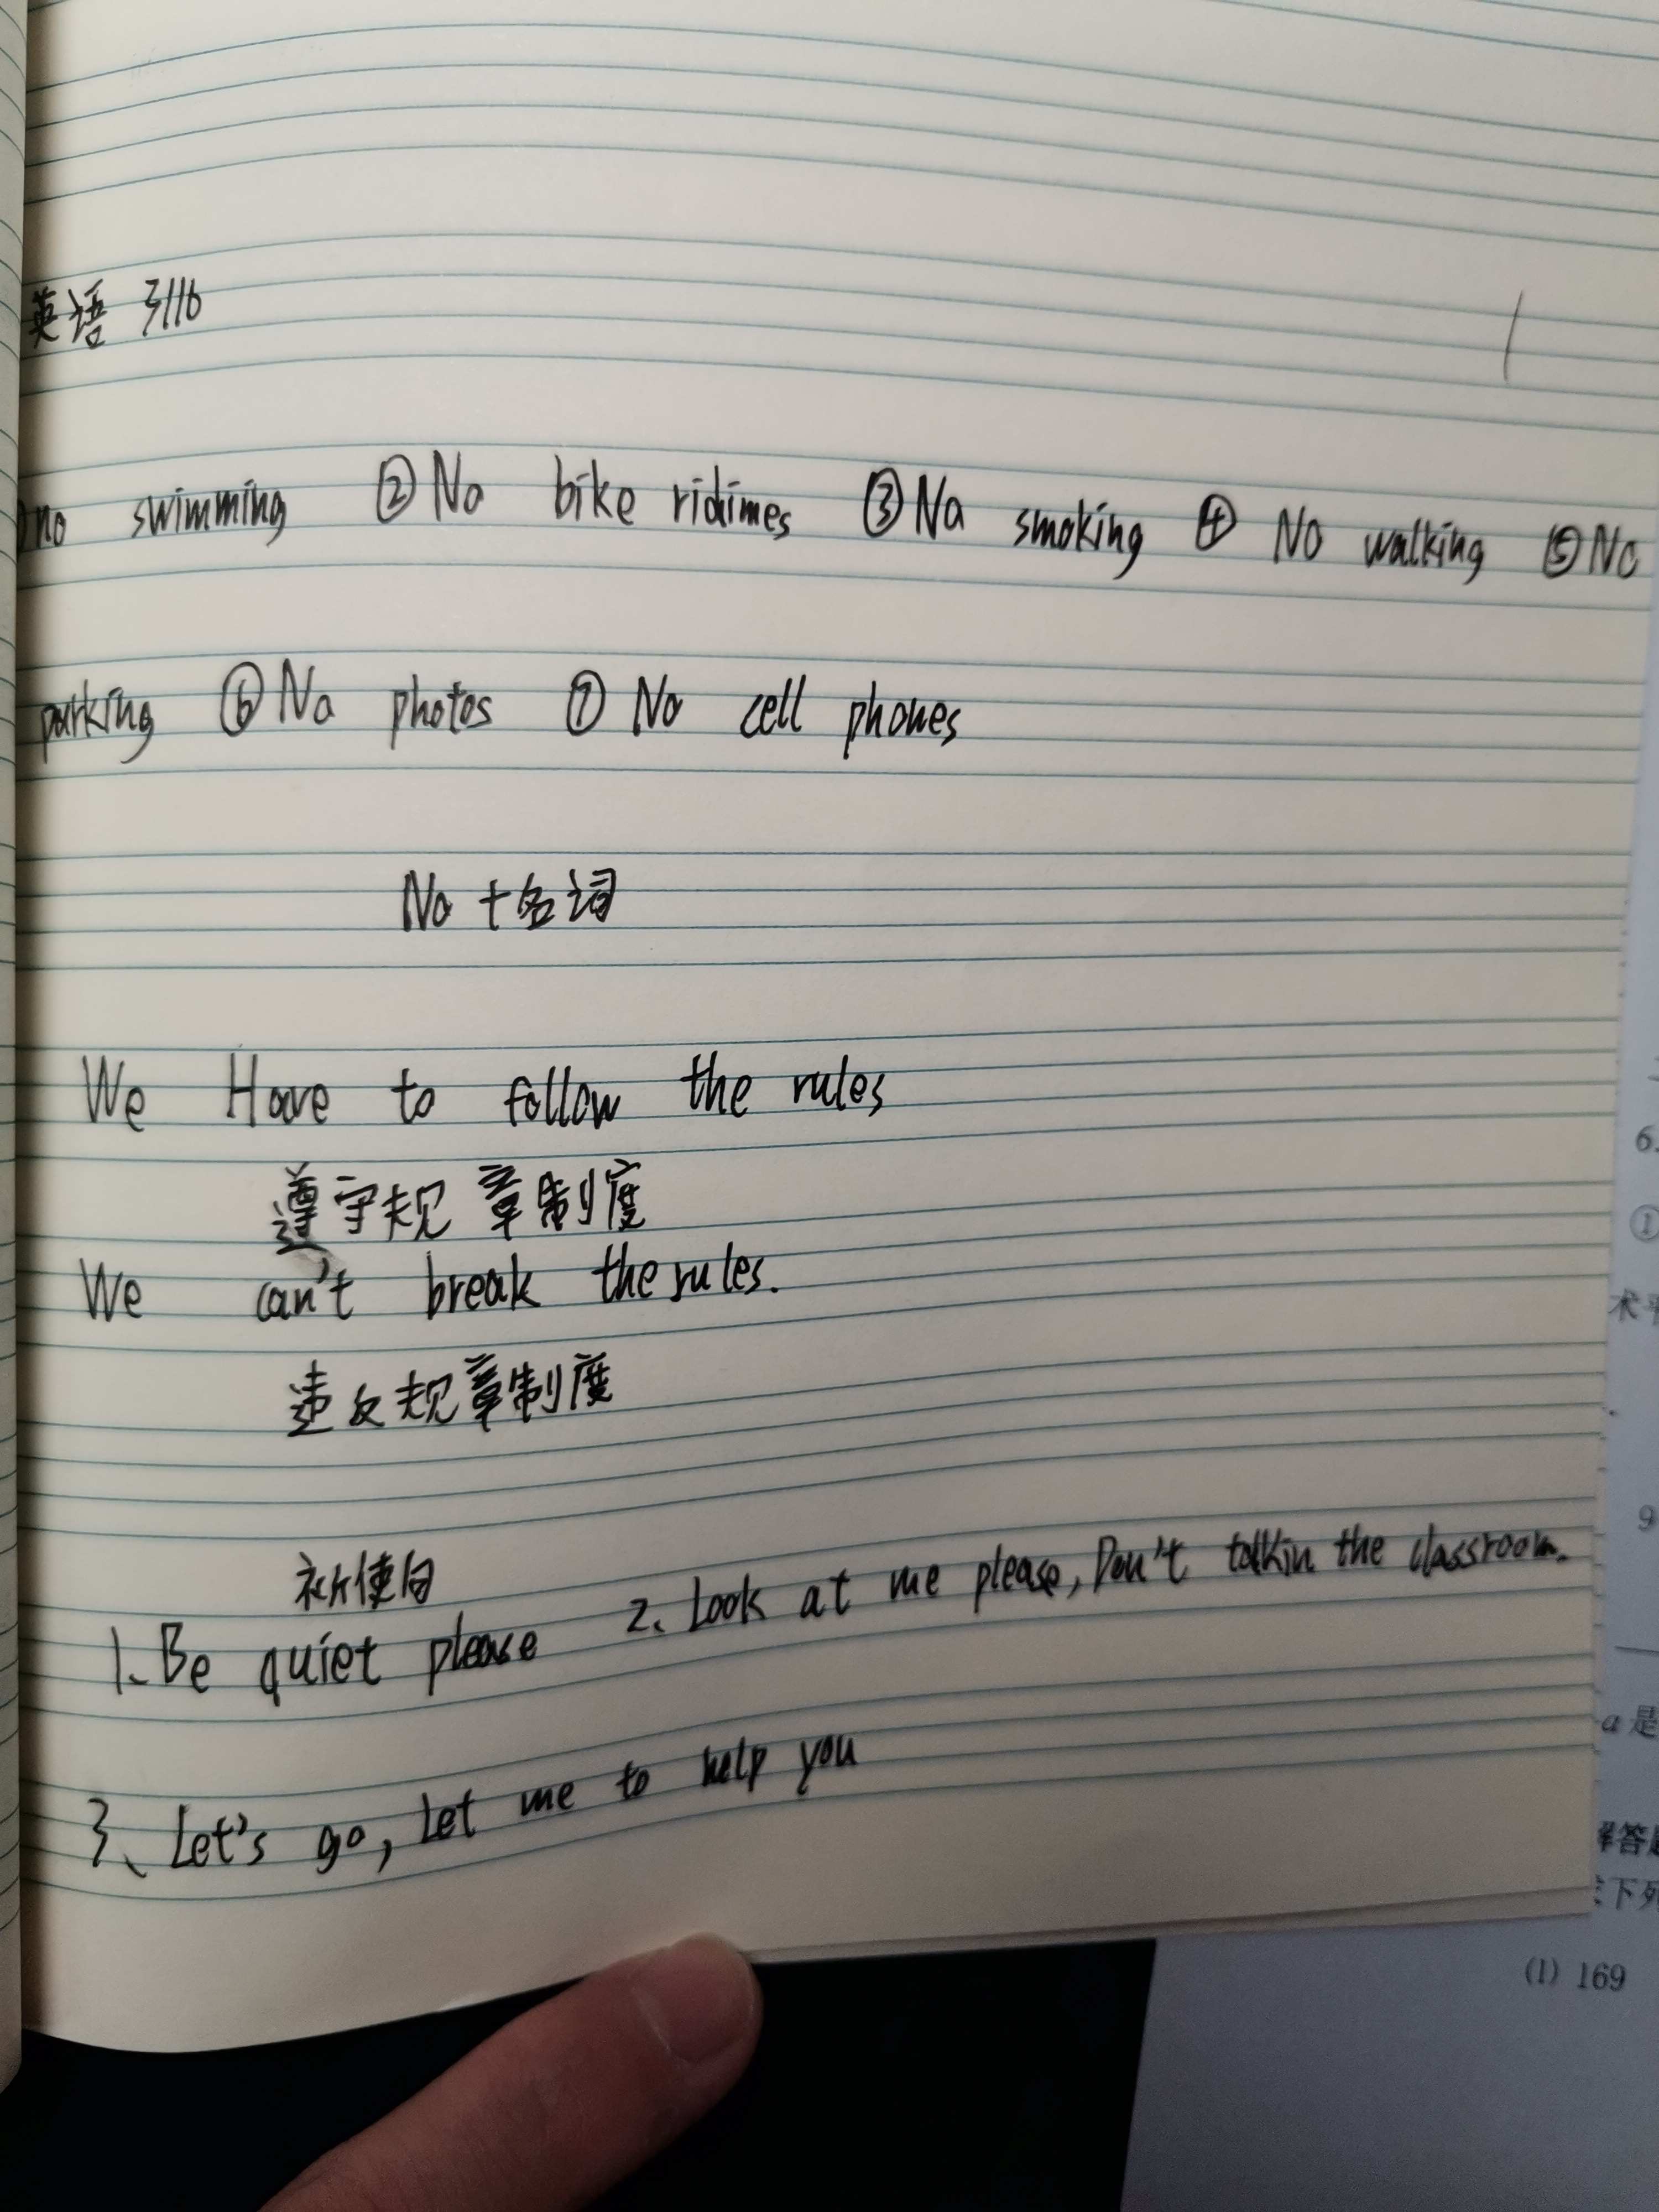 英语 3116
no swimming ②No bike ridimes ③No smoking ④ No walking ⑤No
parking ⑥No photos ⑦ No cell phones
No +名词
We Have to follow the rules
遵守规章制度
We can't break the rules.
违反规章制度
祈使句
1、Be quiet please 2、Look at me please, Don't talkin the classroom.
3、Let's go, Let me to help you
6.
①
9
a 是
解答
下列
(1) 169